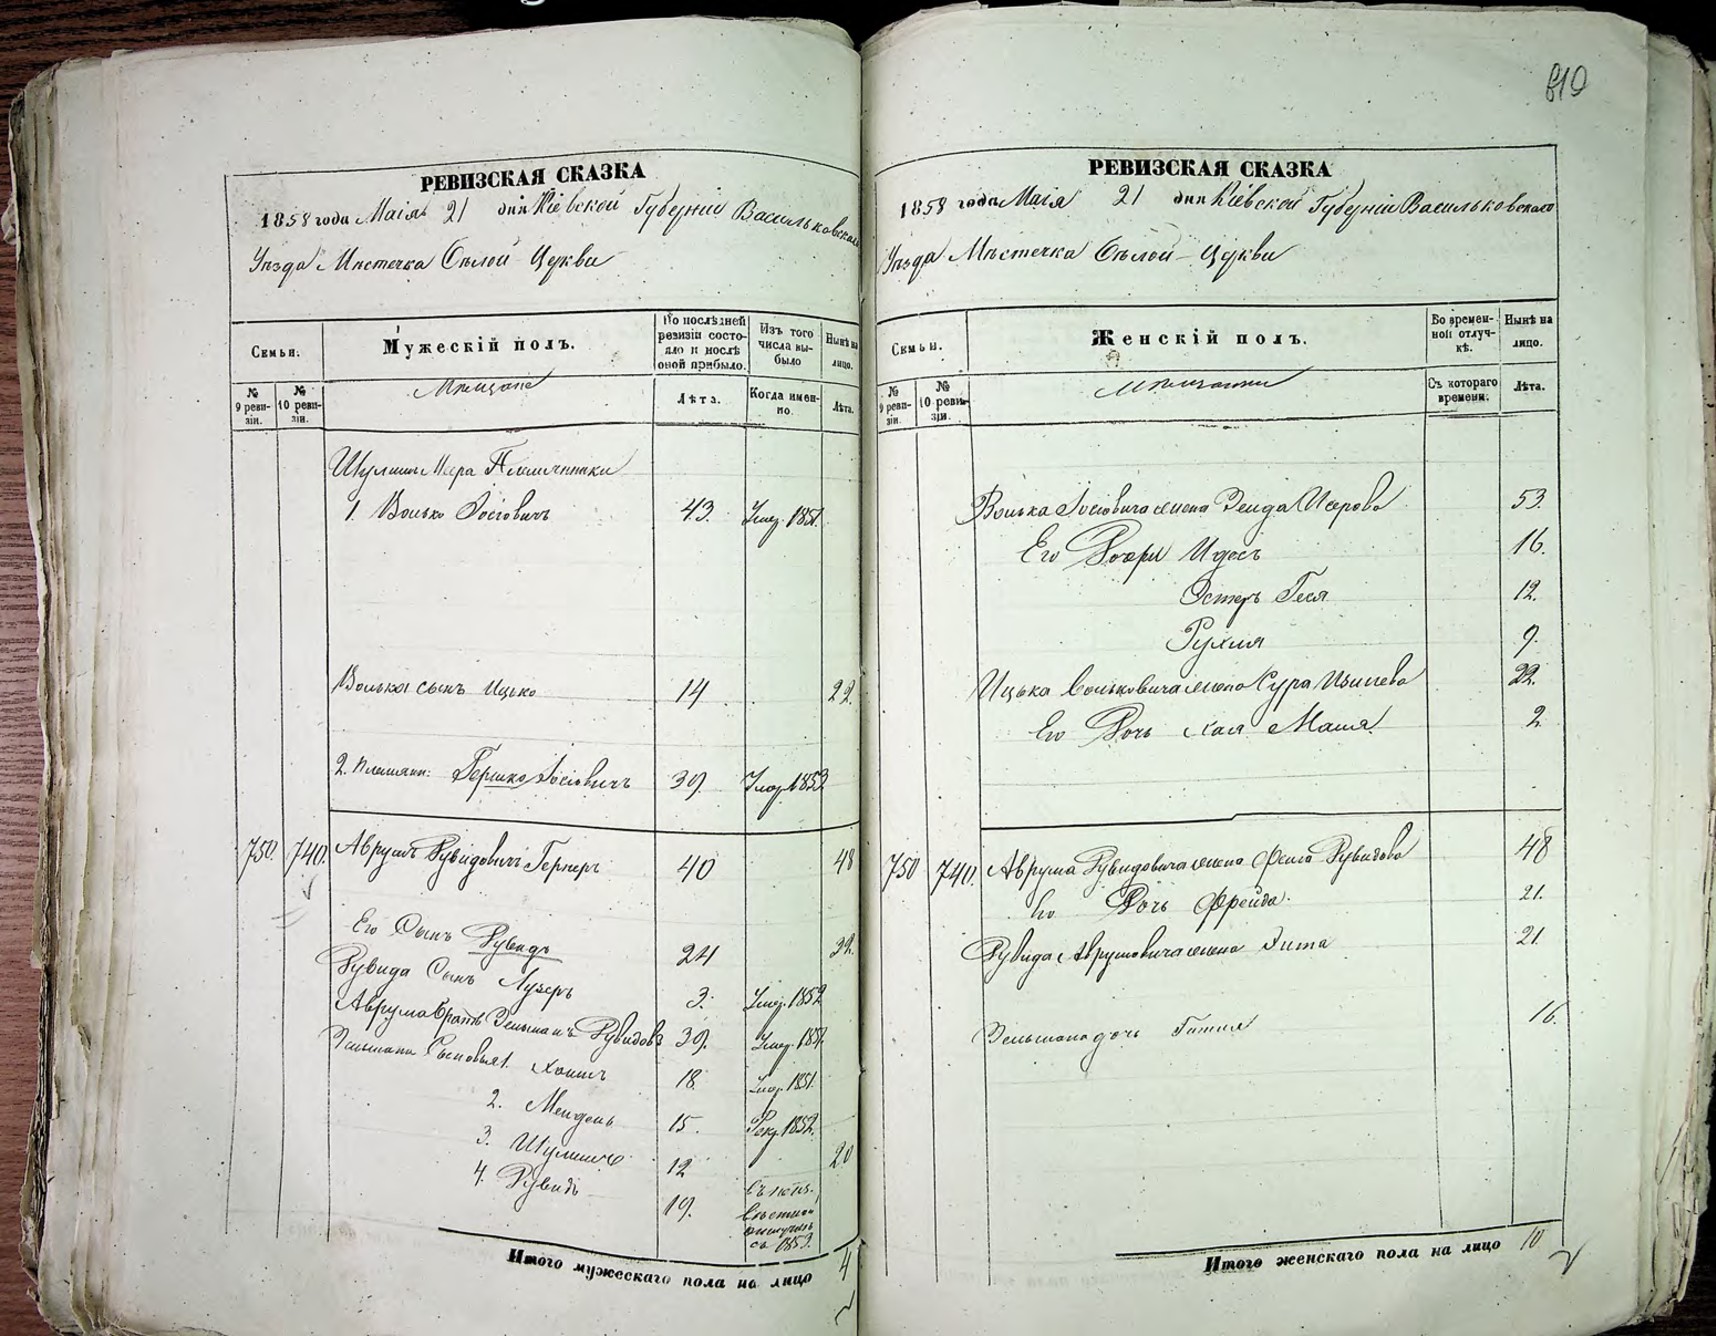 810
РЕВИЗСКАЯ СКАЗКА
1858 года Маія 21 дня Кіевской Губерніи Васильковскаго
Уѣзда Мѣстечка Бѣлой Церкви
Семьи.
Мужескій полъ.
По послѣдней ревизіи состояло и послѣ оной прибыло.
Изъ того числа выбыло
Нынѣ на лицо.
№ 9 ревизіи.
№ 10 ревизіи.
Мѣщане
Лѣта.
Когда именно.
Лѣта.
Шулима Иcера Племянники
1. Волько Іосіовичъ 43. Умер. 1851.
Волька сынъ Ицько 14 22.
2. Племянн: Гершко Іосіовичъ 39. Умер. 1853
750. 740. Аврумъ Рувидовичъ Гернеръ 40 48
Его Сынъ Рувидъ 24 32.
Рувида Сынъ Лузеръ 3. Умер. 1852
Аврума братъ Зельманъ Рувидов. 39. Умер. 1851.
Зельмана Сыновья 1. Хаимъ 18. Умер. 1851.
2. Мендель 15. Рекр. 1852.
3. Шулимъ 12 20
4. Рувидъ 19. въ неизвѣстной отлучкѣ съ 1853.
Итого мужескаго пола на лицо 4
РЕВИЗСКАЯ СКАЗКА
1858 года Маія 21 дня Кіевской Губерніи Васильковскаго
Уѣзда Мѣстечка Бѣлой Церкви
Семьи.
Женскій полъ.
Во временной отлучкѣ.
Нынѣ на лицо.
№ 9 ревизіи.
№ 10 ревизіи.
Мѣщанки
Съ котораго времени.
Лѣта.
Волька Іосіовича жена Зельда Исерова 53.
Его Дочери Идесъ 16.
Эстеръ Геся 12.
Рухля 9.
Ицька Вольковича жена Сура 22.
Его Дочь Хая Маша 2
750 740. Аврума Рувидовича жена Фейга Рувидова 48
Его Дочь Фрейда. 21.
Рувида Аврумовича жена Гита 21.
Зельмана дочь Гитля 16.
Итого женскаго пола на лицо 10